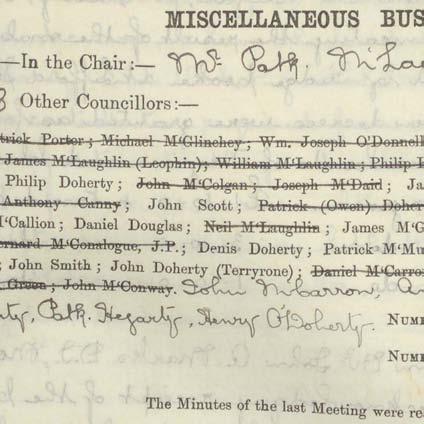 MISCELLANEOUS BUS
—In the Chair:— Mr. Patk. M'La
8 Other Councillors:—
trick Porter; Michael M'Glinchey; Wm. Joseph O'Donnell
James M'Laughlin (Leophin); William M'Laughlin; Philip
Philip Doherty; John M'Colgan; Joseph M'Daid; Ja
Anthony Canny; John Scott; Patrick (Owen) Doher
M'Callion; Daniel Douglas; Neil M'Laughlin; James M'G
ernard M'Conalogue, J.P.; Denis Doherty; Patrick M'Mu
; John Smith; John Doherty (Terryrone); Daniel M'Carro
Green; John M'Conway. John McCarron, An
ty, Patk. Hegarty, Henry O'Doherty. NUM
NUM
The Minutes of the last Meeting were re